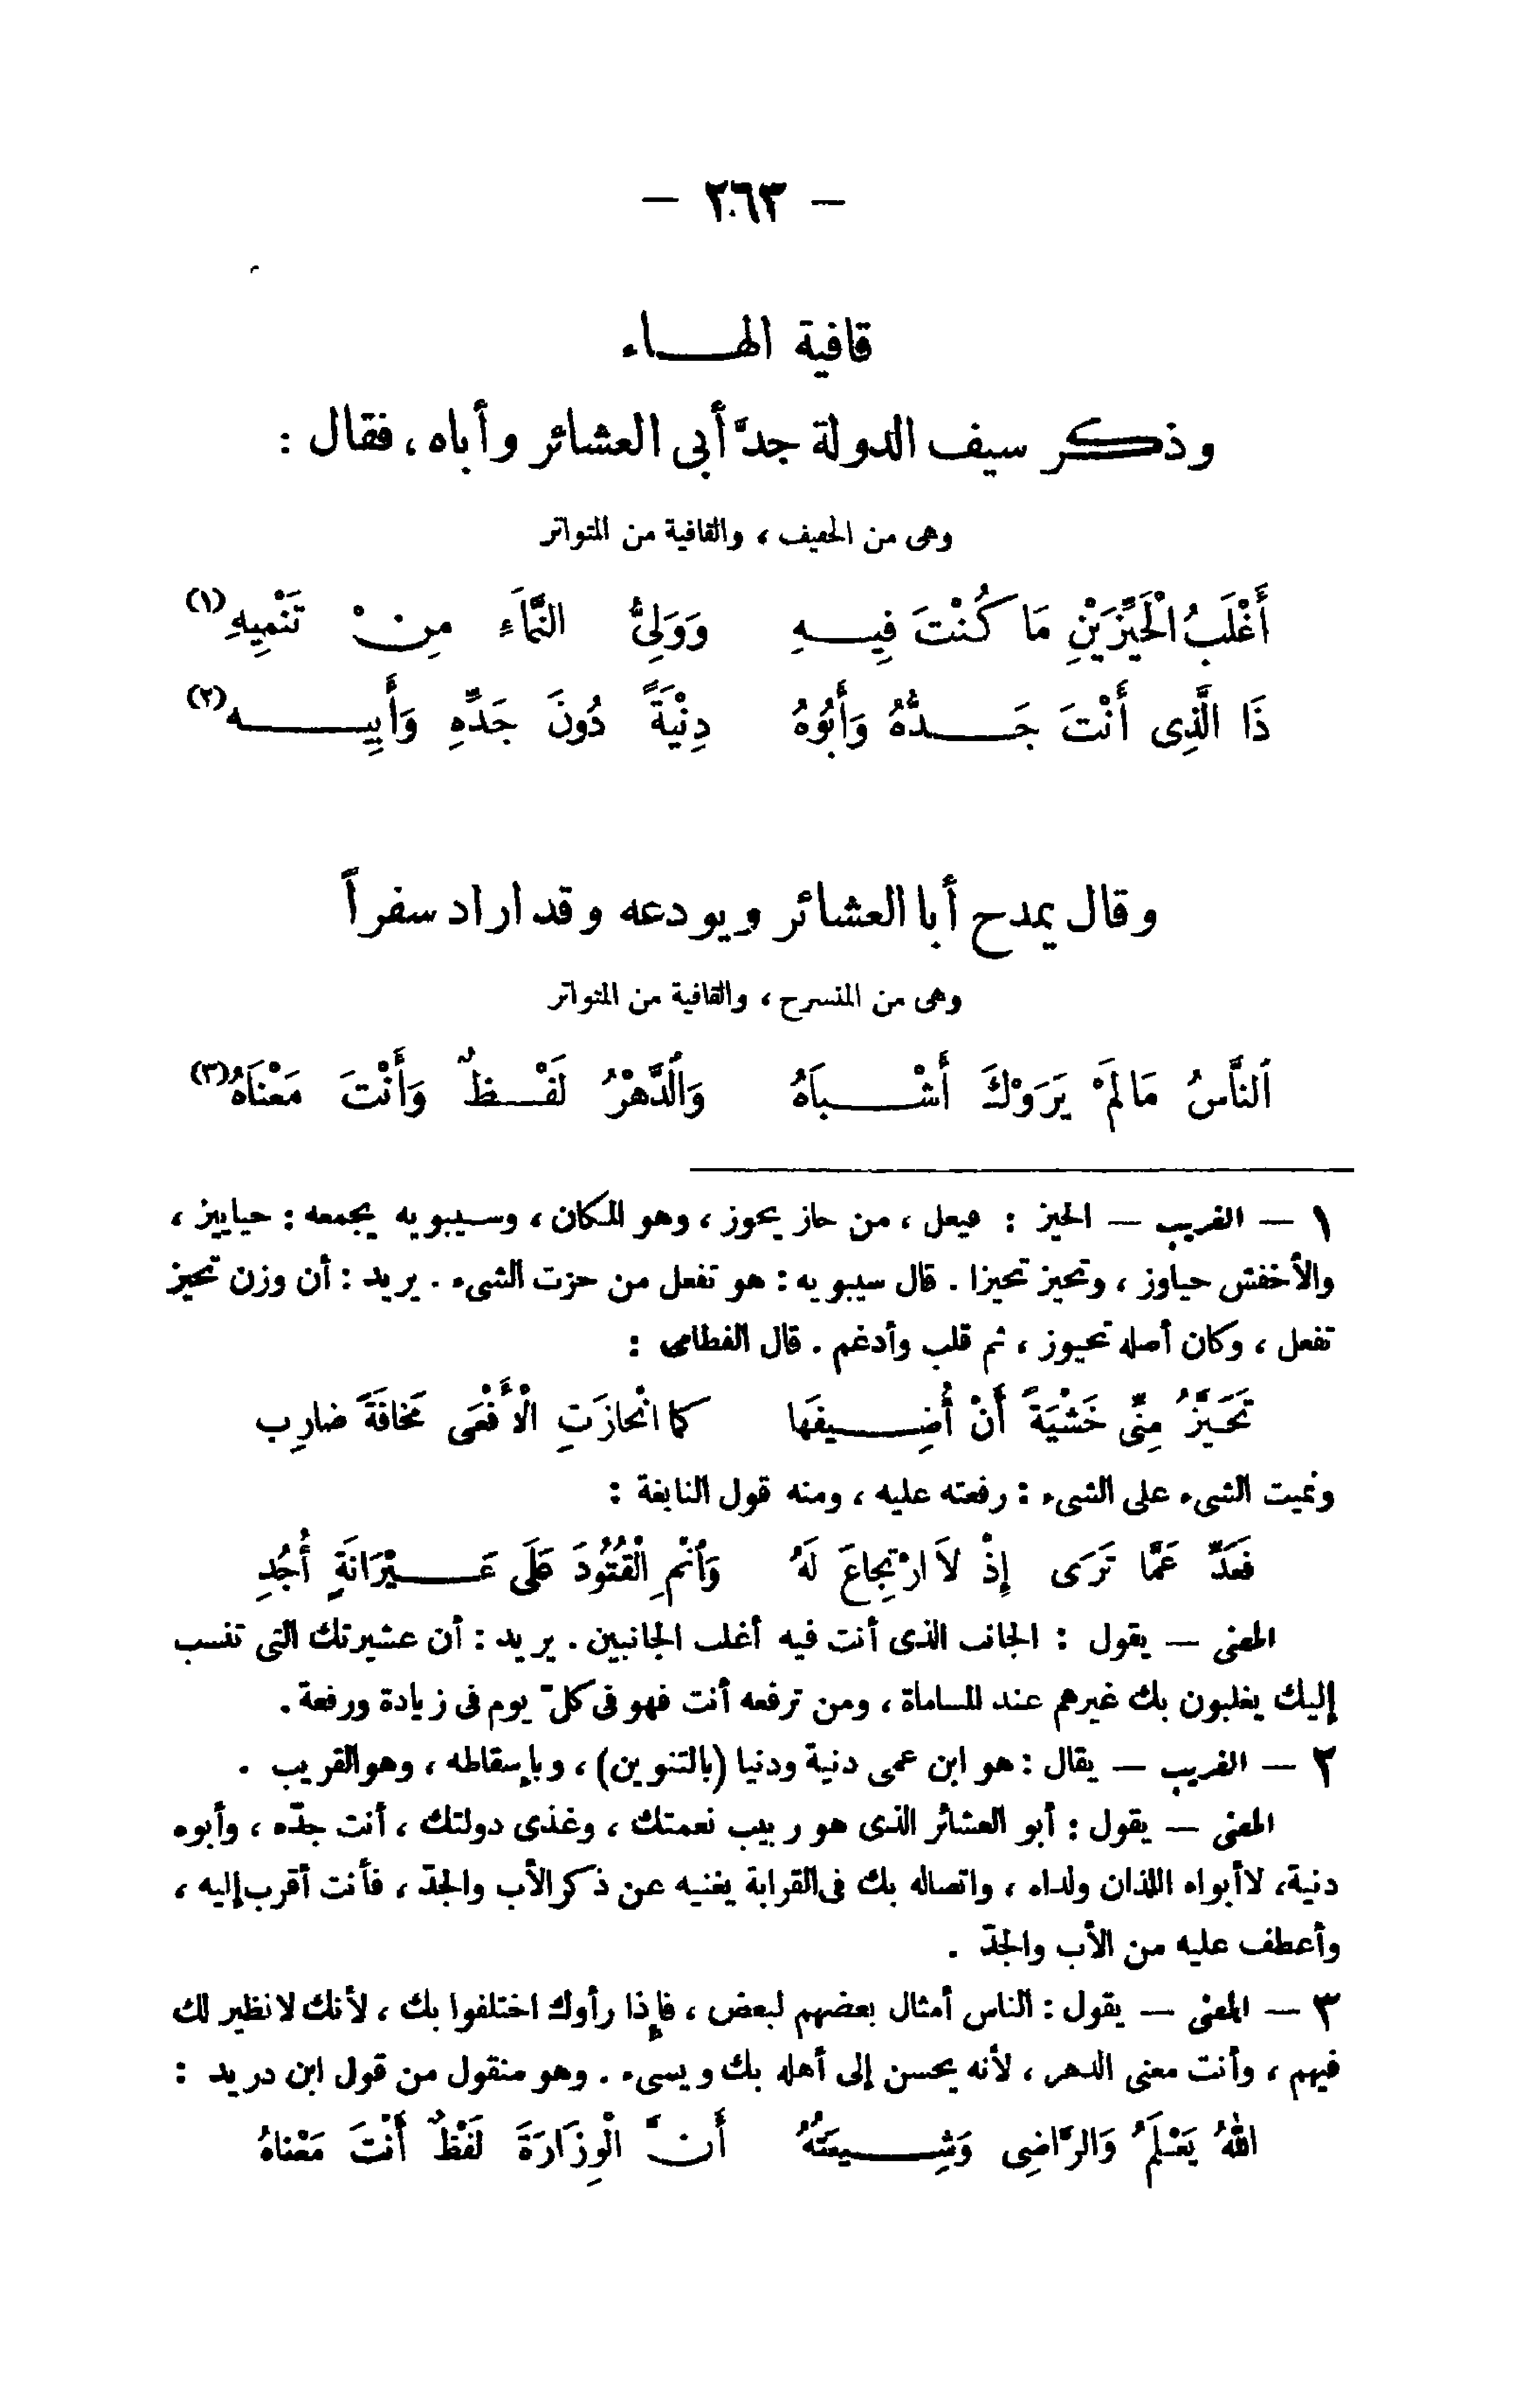 — ٢٦٣ —
قافية الهاء
وذكر سيف الدولة جدّ أبى العشائر وأباه، فقال :
وهى من الخفيف ، والقافية من المتواتر
أَغْلَبُ الْحَيِّزَيْنِ مَا كُنْتَ فِيهِ وَوَلِىُّ النَّمَاءِ مِنْ تَنْمِيهِ(١)
ذَا الَّذِى أَنْتَ جَدُّهُ وَأَبُوهُ دِنْيَةً دُونَ جَدِّهِ وَأَبِيهِ(٢)
وقال يمدح أبا العشائر ويودعه وقد اراد سفراً
وهى من المنسرح ، والقافية من المتواتر
اَلنَّاسُ مَا لَمْ يَرَوْكَ أَشْبَاهُ وَالدَّهْرُ لَفْظٌ وَأَنْتَ مَعْنَاهُ(٣)
١ — الغريب — الحيز : فيعل ، من حاز يحوز ، وهو المكان ، وسيبويه يجمعه : حياييز ،
والأخفش حياوز ، وتحيز تحيزا . قال سيبويه : هو تفعل من حزت الشىء . يريد : أن وزن تحيز
تفعل ، وكان أصله تحيوز ، ثم قلب وأدغم . قال القطامى :
تَحَيَّزُ مِنِّى خَشْيَةً أَنْ أُضِيفَهَا كما انْحازَتِ الْأَفْعَى مَخافَةَ ضارِب
ونميت الشىء على الشىء : رفعته عليه ، ومنه قول النابغة :
فَعَدِّ عَمَّا تَرَى إِذْ لاَ ارْتِجاعَ لَهُ وَانْمِ الْقُتُودَ عَلَى عَيْرَانَةٍ أُجُدِ
المعنى — يقول : الجانب الذى أنت فيه أغلب الجانبين . يريد : أن عشيرتك التى تنسب
إليك يغلبون بك غيرهم عند المساماة ، ومن ترفعه أنت فهو فى كلّ يوم فى زيادة ورفعة .
٢ — الغريب — يقال : هو ابن عمى دنية ودنيا (بالتنوين) ، وبإسقاطه ، وهو القريب .
المعنى — يقول : أبو العشائر الذى هو ربيب نعمتك ، وغذى دولتك ، أنت جدّه ، وأبوه
دنية، لا أبواه اللذان ولداه ، واتصاله بك فى القرابة يغنيه عن ذكر الأب والجدّ ، فأنت أقرب إليه ،
وأعطف عليه من الأب والجدّ .
٣ — المعنى — يقول : الناس أمثال بعضهم لبعض ، فإذا رأوك اختلفوا بك ، لأنك لا نظير لك
فيهم ، وأنت معنى الدهر ، لأنه يحسن إلى أهله بك ويسىء . وهو منقول من قول ابن دريد :
اللهُ يَعْلَمُ وَالرَّاضِى وَشِيعَتُهُ أَنَّ الْوِزَارَةَ لَفْظٌ أَنْتَ مَعْناهُ